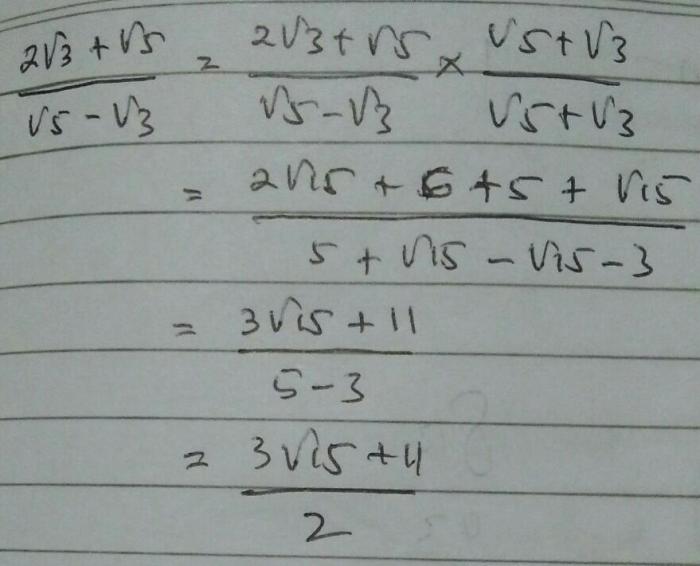 (2√3 + √5)/(√5 - √3) = (2√3 + √5)/(√5 - √3) × (√5 + √3)/(√5 + √3)
= (2√15 + 6 + 5 + √15)/(5 + √15 - √15 - 3)
= (3√15 + 11)/(5 - 3)
= (3√15 + 11)/2